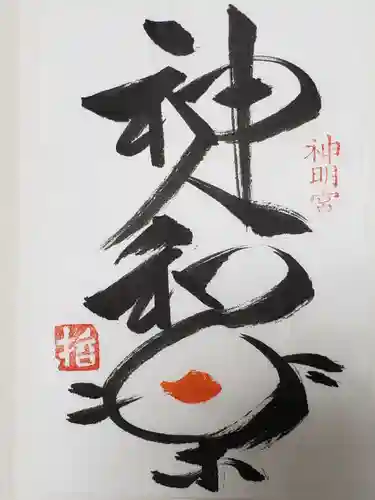 神人和楽
神明宮
哲